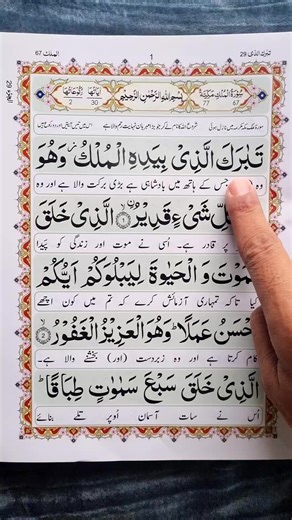 الملك ٦٧ 1 تبرك الذي ٢٩
سُوْرَةُ الْمُلْكِ مَكِّيَّةٌ بِسْمِ اللهِ الرَّحْمٰنِ الرَّحِيْمِ اٰيَاتُهَا رُكُوْعَاتُهَا
67 77 30 2
شروع اللہ کا نام لے کر جو بڑا مہربان نہایت رحم والا ہے اس میں تیس آیتیں اور دو رکوع ہیں
تَبٰرَكَ الَّذِىْ بِيَدِهِ الْمُلْكُ وَهُوَ
وہ جس کے ہاتھ میں بادشاہی ہے بڑی برکت والا ہے اور وہ
شَىْءٍ قَدِيْرُ ۙ﴿1﴾ الَّذِىْ خَلَقَ
پر قادر ہے۔ اسی نے موت اور زندگی کو پیدا
وَالْحَيٰوةَ لِيَبْلُوَكُمْ اَيُّكُمْ
کیا تاکہ تمہاری آزمائش کرے کہ تم میں کون اچھے
عَمَلًا ؕ وَهُوَ الْعَزِيْزُ الْغَفُوْرُ ۙ﴿2﴾
کام کرتا ہے اور وہ زبردست (اور) بخشنے والا ہے۔
الَّذِىْ خَلَقَ سَبْعَ سَمٰوٰتٍ طِبَاقًا ؕ
اُس نے سات آسمان اُوپر تلے بنائے